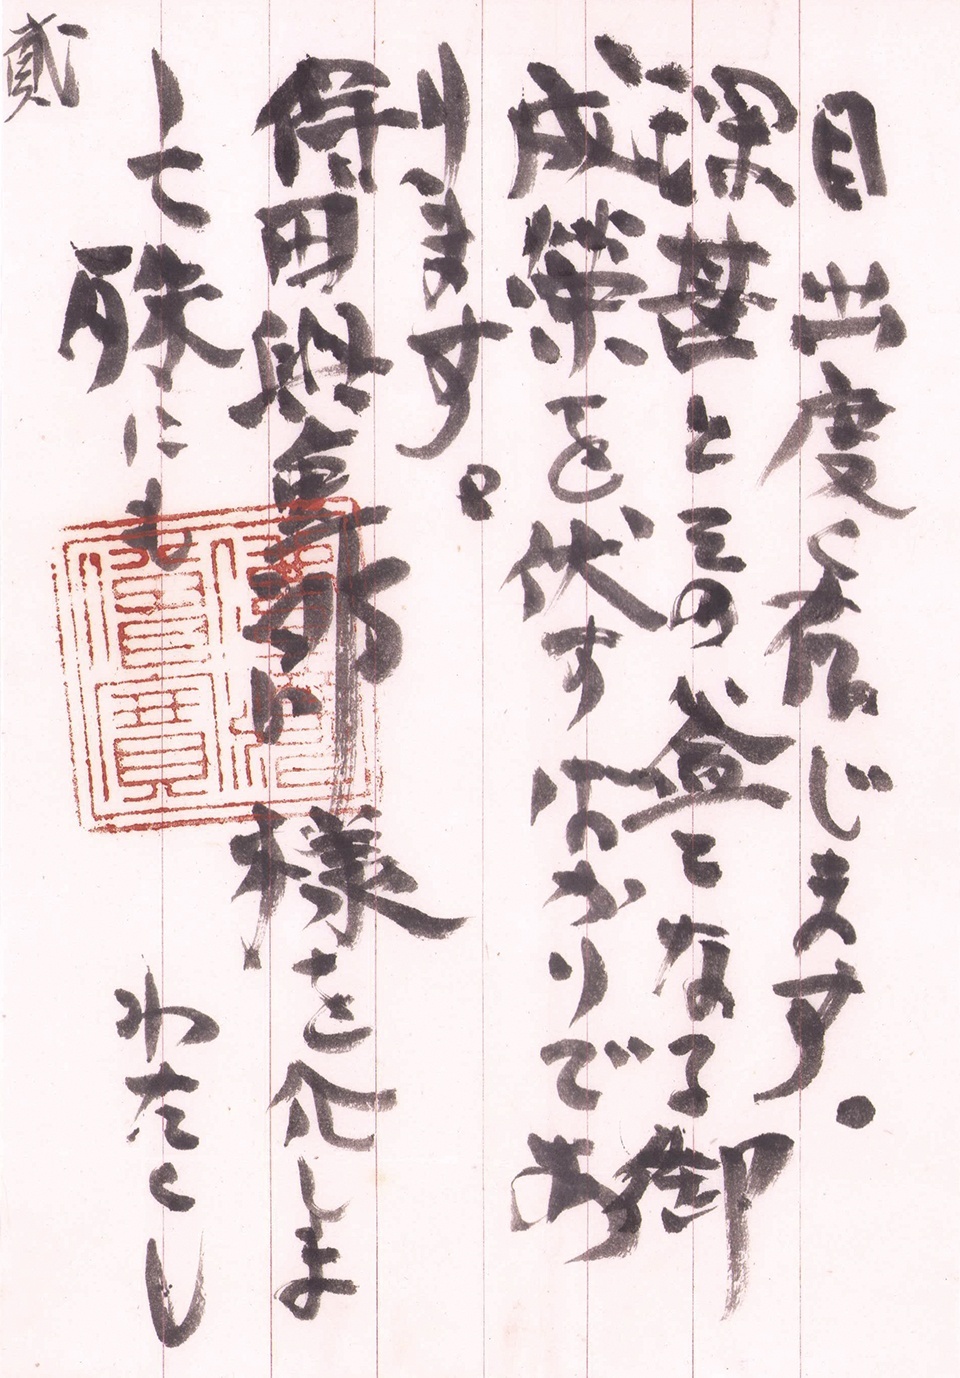 目出度く存じます。
深甚とその益となる御
成榮を伏すばかりであ
ります。
保田與重郎 様を介しま
して殊にも わたくし
貳